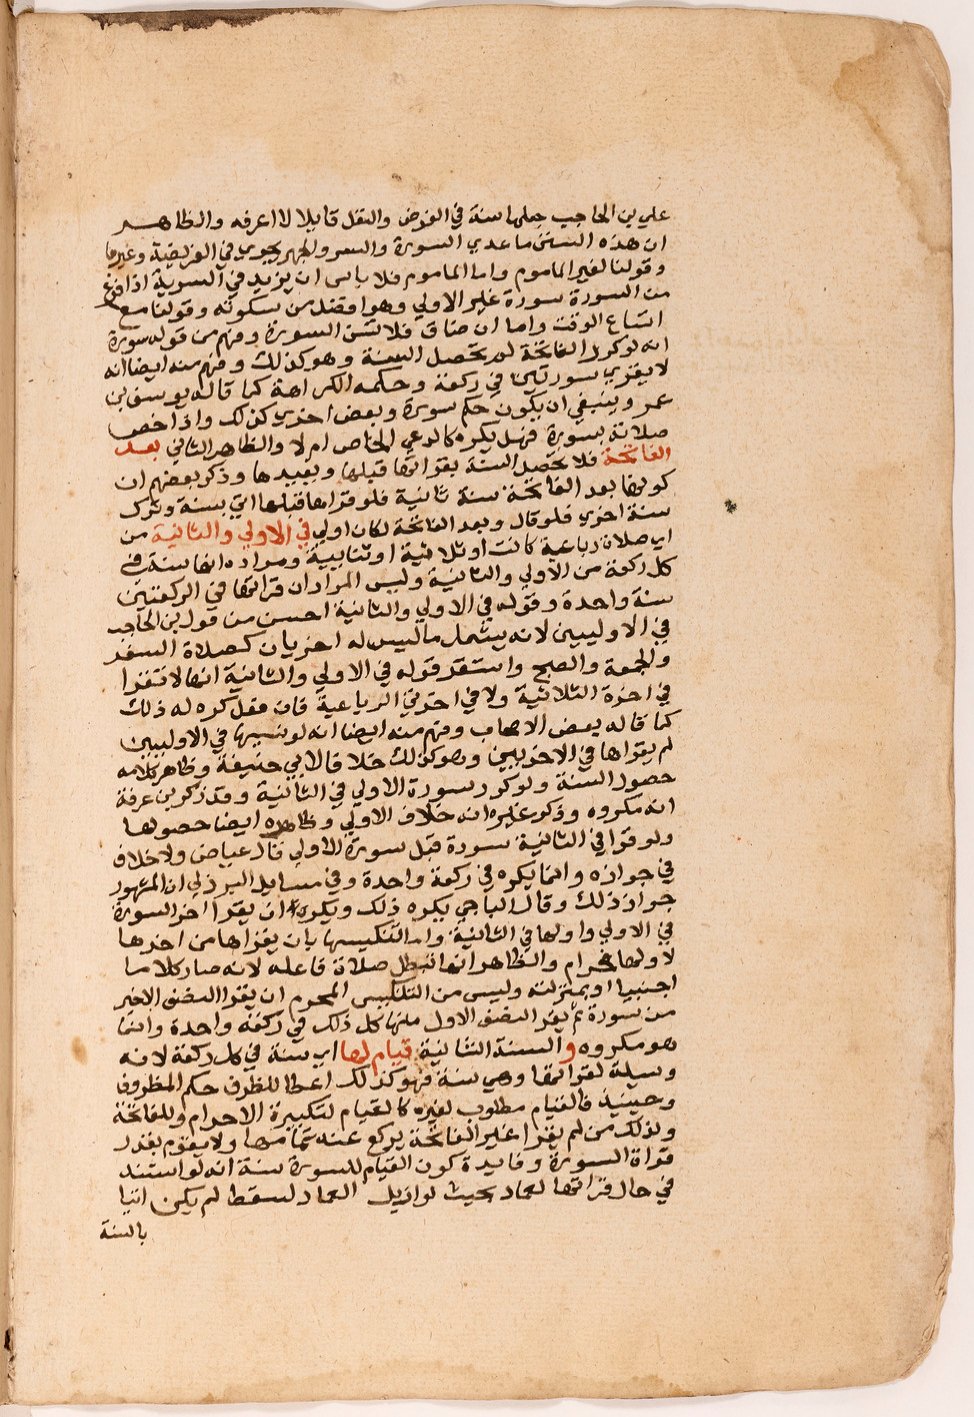 علي بن الحاجب جعلها سنة في الفرض والنفل قايلا لا اعرفه والظاهر
ان هذه السنن ما عدي السورة والسر والجهر يجري في الفريضة وغيرها
وقولنا لغير الماموم واما الماموم فلا باس ان يزيد في السرية اذا فرغ
من السورة سورة غير الاولي وهو افضل من سكوته وقولنا مع
اتساع الوقت واما ان ضاق فلا تسن السورة وفهم من قوله سورة
انه لو كرر الفاتحة لم تحصل السنة وهو كذلك وفهم منه ايضا انه
لا يقري سورتين في ركعة وحكمه الكراهة كما قاله يوسف بن
عمر وينبغي ان يكون حكم سورة وبعض اخري كذلك واذا خص
صلاته بسورة فهل يكره كالدعي الخاص ام لا والظاهر الثاني بعد
الفاتحة فلا تحصل السنة بقراتها قبلها ويعيدها وذكر بعضهم ان
كونها بعد الفاتحة سنة ثانية فلو قراها قبلها اتي بسنة وترك
سنة اخري فلو قال وبعد الفاتحة لكان اولي في الاولي والثانية من
اي صلاة رباعية كانت او ثلاثية او ثنايية ومراده انها سنة في
كل ركعة من الاولي والثانية وليس المراد ان قراتها في الركعتين
سنة واحدة وقوله في الاولي والثانية احسن من قول بن الحاجب
في الاوليين لانه يشمل ما ليس له اخريان كصلاة السفر
والجمعة والصبح واستقر قوله في الاولي والثانية انها لا تقرا
في اخرة الثلاثية ولا في اخرتي الرباعية فان فعل كره له ذلك
كما قاله بعض الاصحاب وفهم منه ايضا انه لو نسيها في الاوليين
لم يقراها في الاخريين وهو كذلك خلافا لابي حنيفة وظاهر كلامه
حصول السنة ولو كرر سورة الاولي في الثانية وقد ذكر بن عرفة
انه مكروه وذكر غيره انه خلاف الاولي وظاهره ايضا حصولها
ولو قرا في الثانية سورة قبل سورة الاولي قال عياض ولا خلاف
في جوازه وانما يكره في ركعة واحدة وفي مسايل البرزلي ان المشهور
جواز ذلك وقال الباجي يكره ذلك ويكره ان يقرا اخر السورة
في الاولي واولها في الثانية واما التنكيس بان يقراها من اخرها
لاولها فحرام والظاهر انها تبطل صلاة فاعله لانه صار كلاما
اجنبيا او بمنزلته وليس من التنكيس المحرم ان يقرا النصف الاخير
من سورة ثم يقرا النصف الاول منها كل ذلك في ركعة واحدة وانما
هو مكروه و السنة الثانية قيام لها اي سنة في كل ركعة لانه
وسيلة لقراتها وهي سنة فهو كذلك اعطا للظرف حكم المظروف
وحينيذ فالقيام مطلوب لغيره كالقيام لتكبيرة الاحرام وللفاتحة
ولذلك من لم يقرا غير الفاتحة يركع عند تمامها ولا يقوم بقدر
قراة السورة وفايدة كون القيام للسورة سنة انه لو استند
في حال قراتها لعماد بحيث لو ازيل العماد لسقط لم يكن اتيا
بالسنة